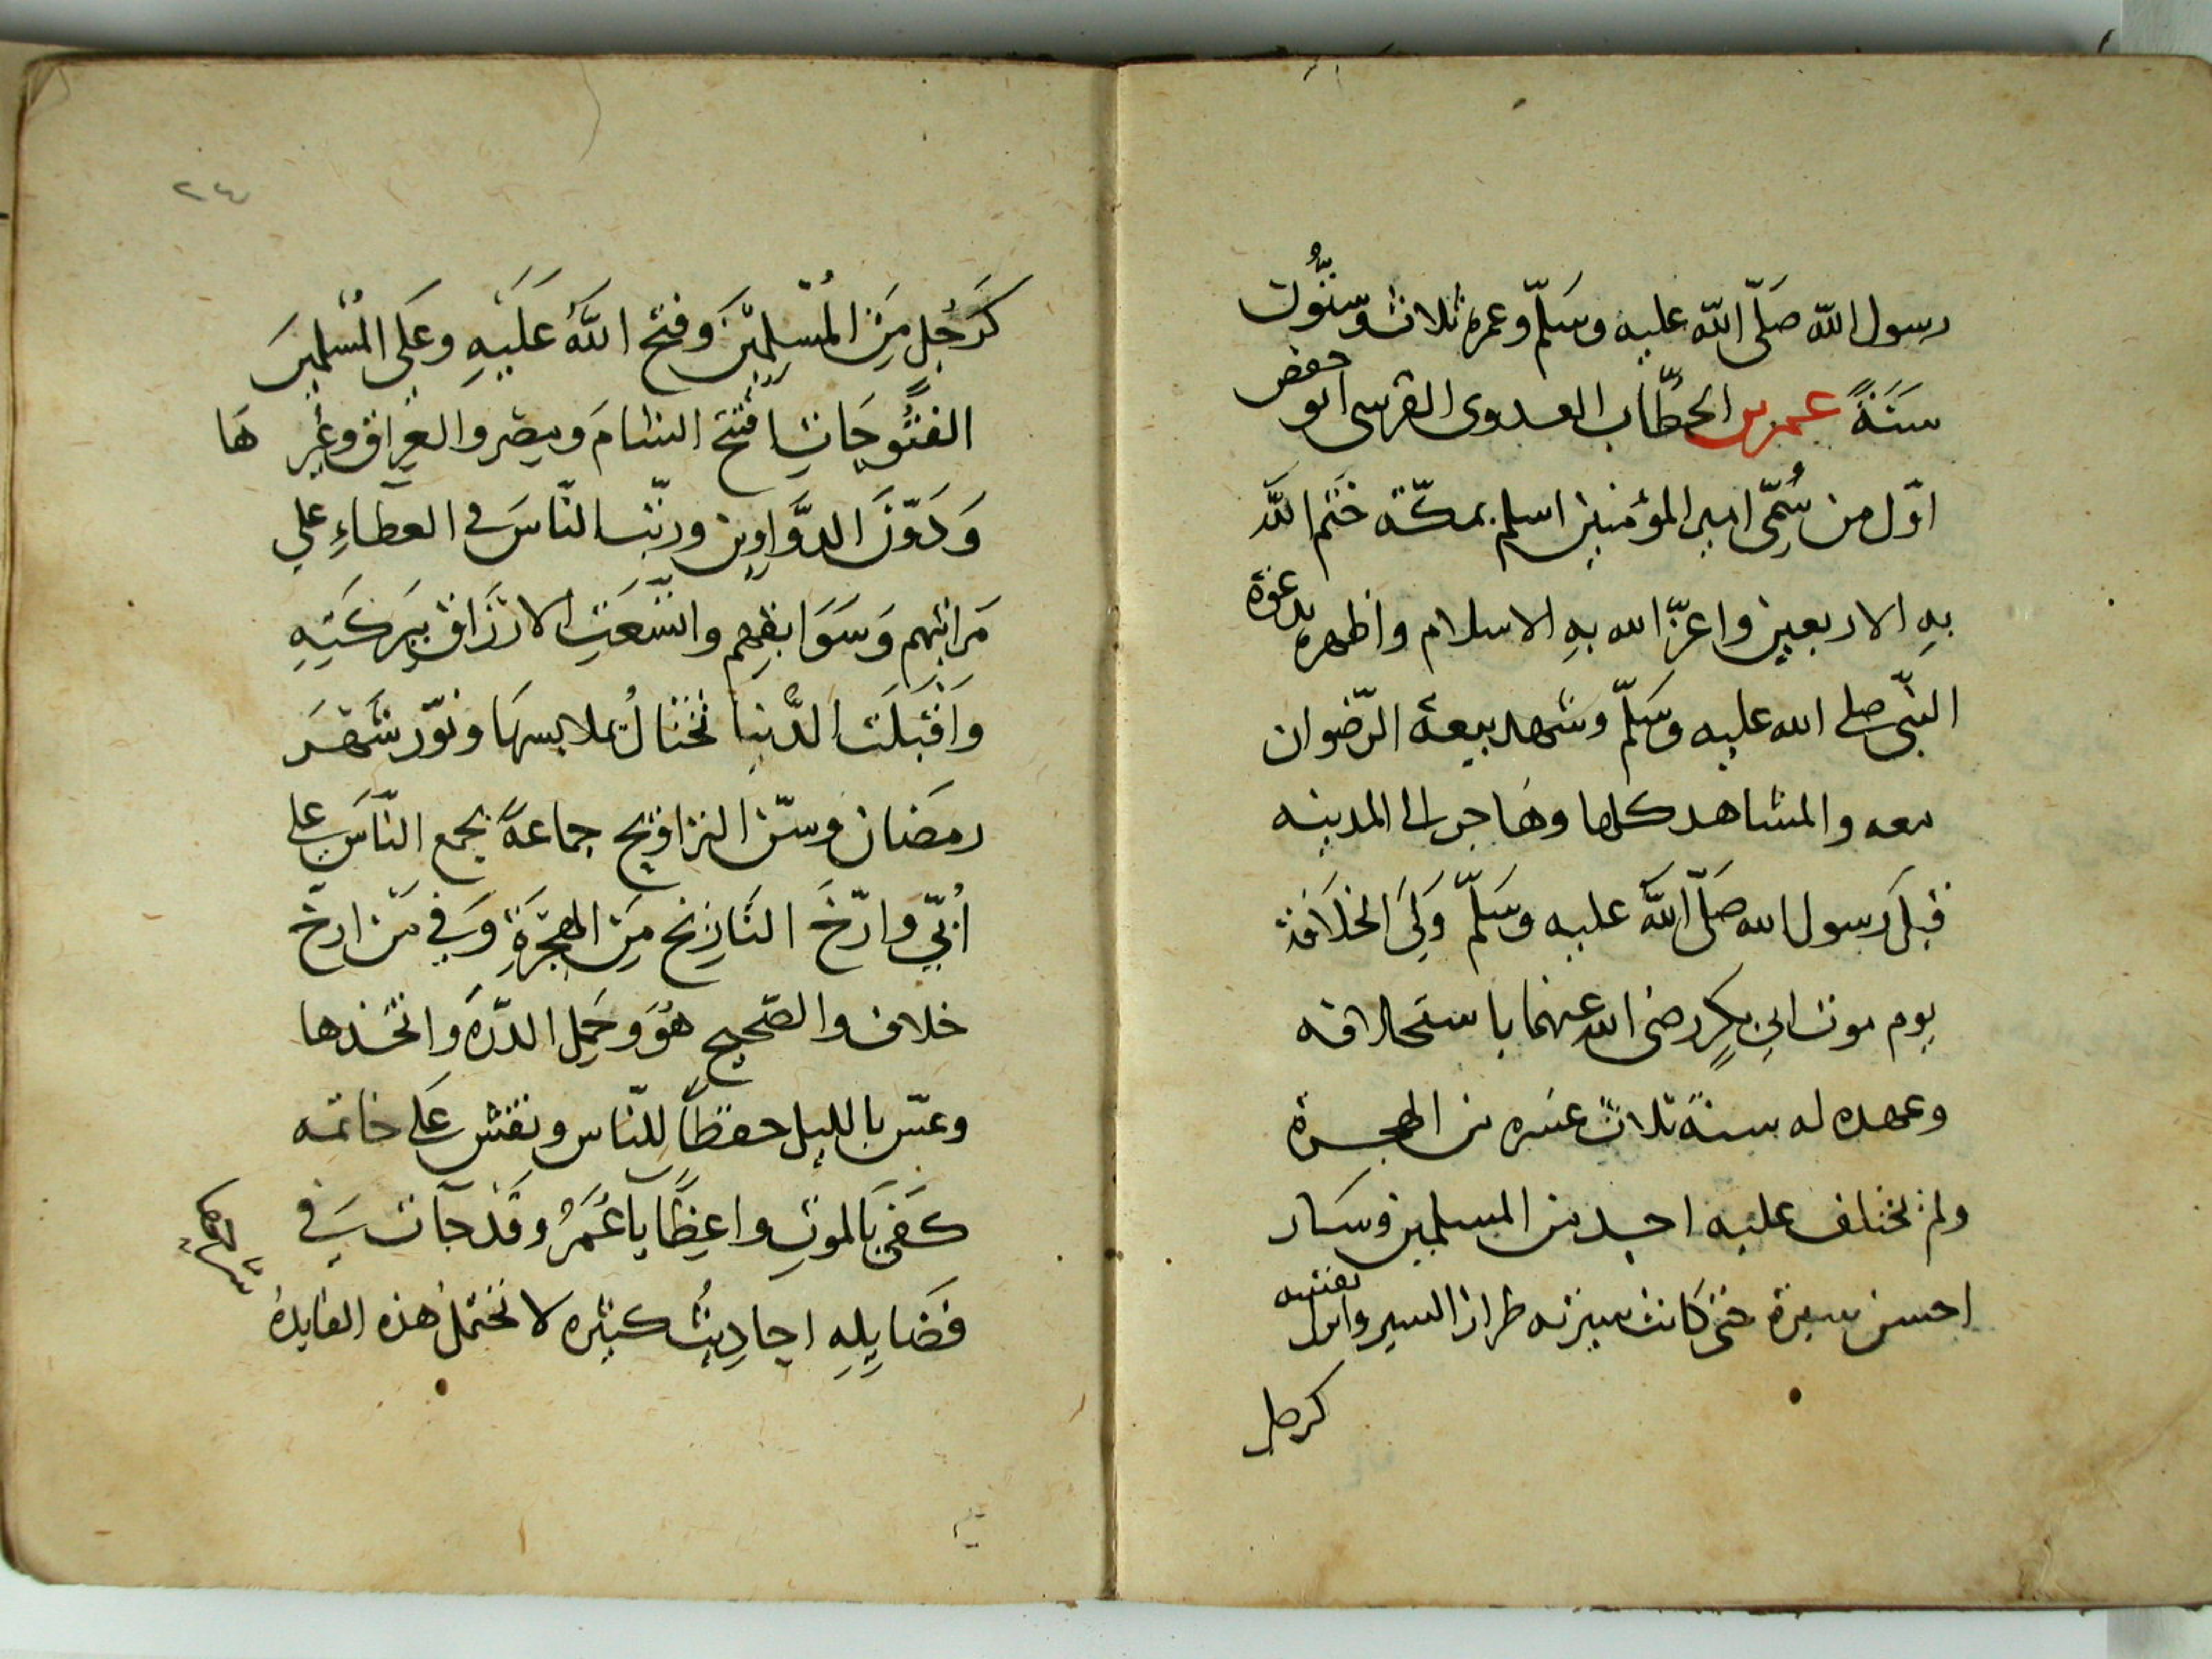 رسول الله صَلّى الله عليه وسَلّم وعمره ثلاث وستُّون
سَنَةً عمر بن الخطّاب العدوى القرشى ابو حفص
اوّل من سُمِّى امير المؤمنين اسلم بمكّة خَتَم اللَّه
بهِ الاربعين واعزّ الله بهِ الاسلام واظهره بدعوة
النّبى صلى الله عليه وسَلّم وشهد بيعة الرّضوان
معه والمشاهد كلها وهَاجر الى المدينه
قبلَ رسول الله صَلّى اللَّه عليه وسَلّم وَلِىَ الخلَافة
يوم موت ابى بكرٍ رضى الله عنهما باستخلافه
وعهده له سنةَ ثلاث عشره من الهجرة
ولم يختلف عليه احد من المسلمين وسَار
احسن سيرة حتى كانت سيرته طراز السير وانزل نفسه
كرجل
٢٤
كَرَجُلٍ مِنَ المُسْلِمِيْنَ وفتح اللَّهُ عَلَيْهِ وعَلَى المُسْلِمِينَ
الفتُّوحَاتِ افتتح الشامَ ومِصر والعِرَاق وغير هَا
وَدَوّنَ الدَّوَاوِين ورتّب النّاسَ فى العطَاءِ على
مَراتبهم وَسَوَابقِهِم واتّسَعَتِ الارْزَاق بِبَركَتِهِ
وَاقْبَلَت الدُّنيا تختالُ بملابسهَا ونوّر شَهْرَ
رمَضان وسنّ التراويح جماعةً بجمع النّاس على
اُبَىّ وارّخَ التَّارِيْخ مِنَ الهِجْرَةِ وَفِي مَن ارخ
خلاف والصّحيح هُوَ وحَمل الدّرة واتخذها
وعسّ بالليل حفظاً للنّاس ونقش عَلى خاتمه
كفى بَالموتِ واعِظًا يا عُمَرُ وقَدْ جآت في
فضَايلِهِ احادِيثُ كثيره لا تحتمل هذه الفايدة